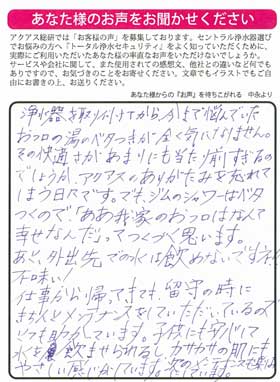 あなた様のお声をお聞かせください
アクアス総研では「お客様の声」を募集しております。セントラル浄水器選び
でお悩みの方へ「トータル浄水セキュリティ」をよく知っていただくために、
実際にご利用いただいたあなた様の率直なお声をいただけないでしょうか。
サービスや会社に関して、また使用されての感想文、他社との違いなど何でも
ありですので、お気づきのことをお寄せください。文章でもイラストでもご自
由にお書きの上、お送りください。
あなた様からの『お声』を待ちこがれる 中永より
浄水器を取り付けてから今まで悩んでいた
おフロの湯のベタつきが全く気になりません。
その快適さがあまりにも当た前すぎるの
でしょうか、アクアスのありがたみを忘れて
しまう日々です。でも、ジムのシャワーはベタ
つくので「ああ我家のおフロはなんて
幸せなんだ」ってつくづく思います。
あと、外出先での水は飲めないです
不味い!
仕事から帰ってきても、留守の時に
きちんとメンテナンスをしていただいているので
とても助かっています。子供にも安心して
水を飲ませられるし、カサカサの肌にも
やさしい感じがしています。